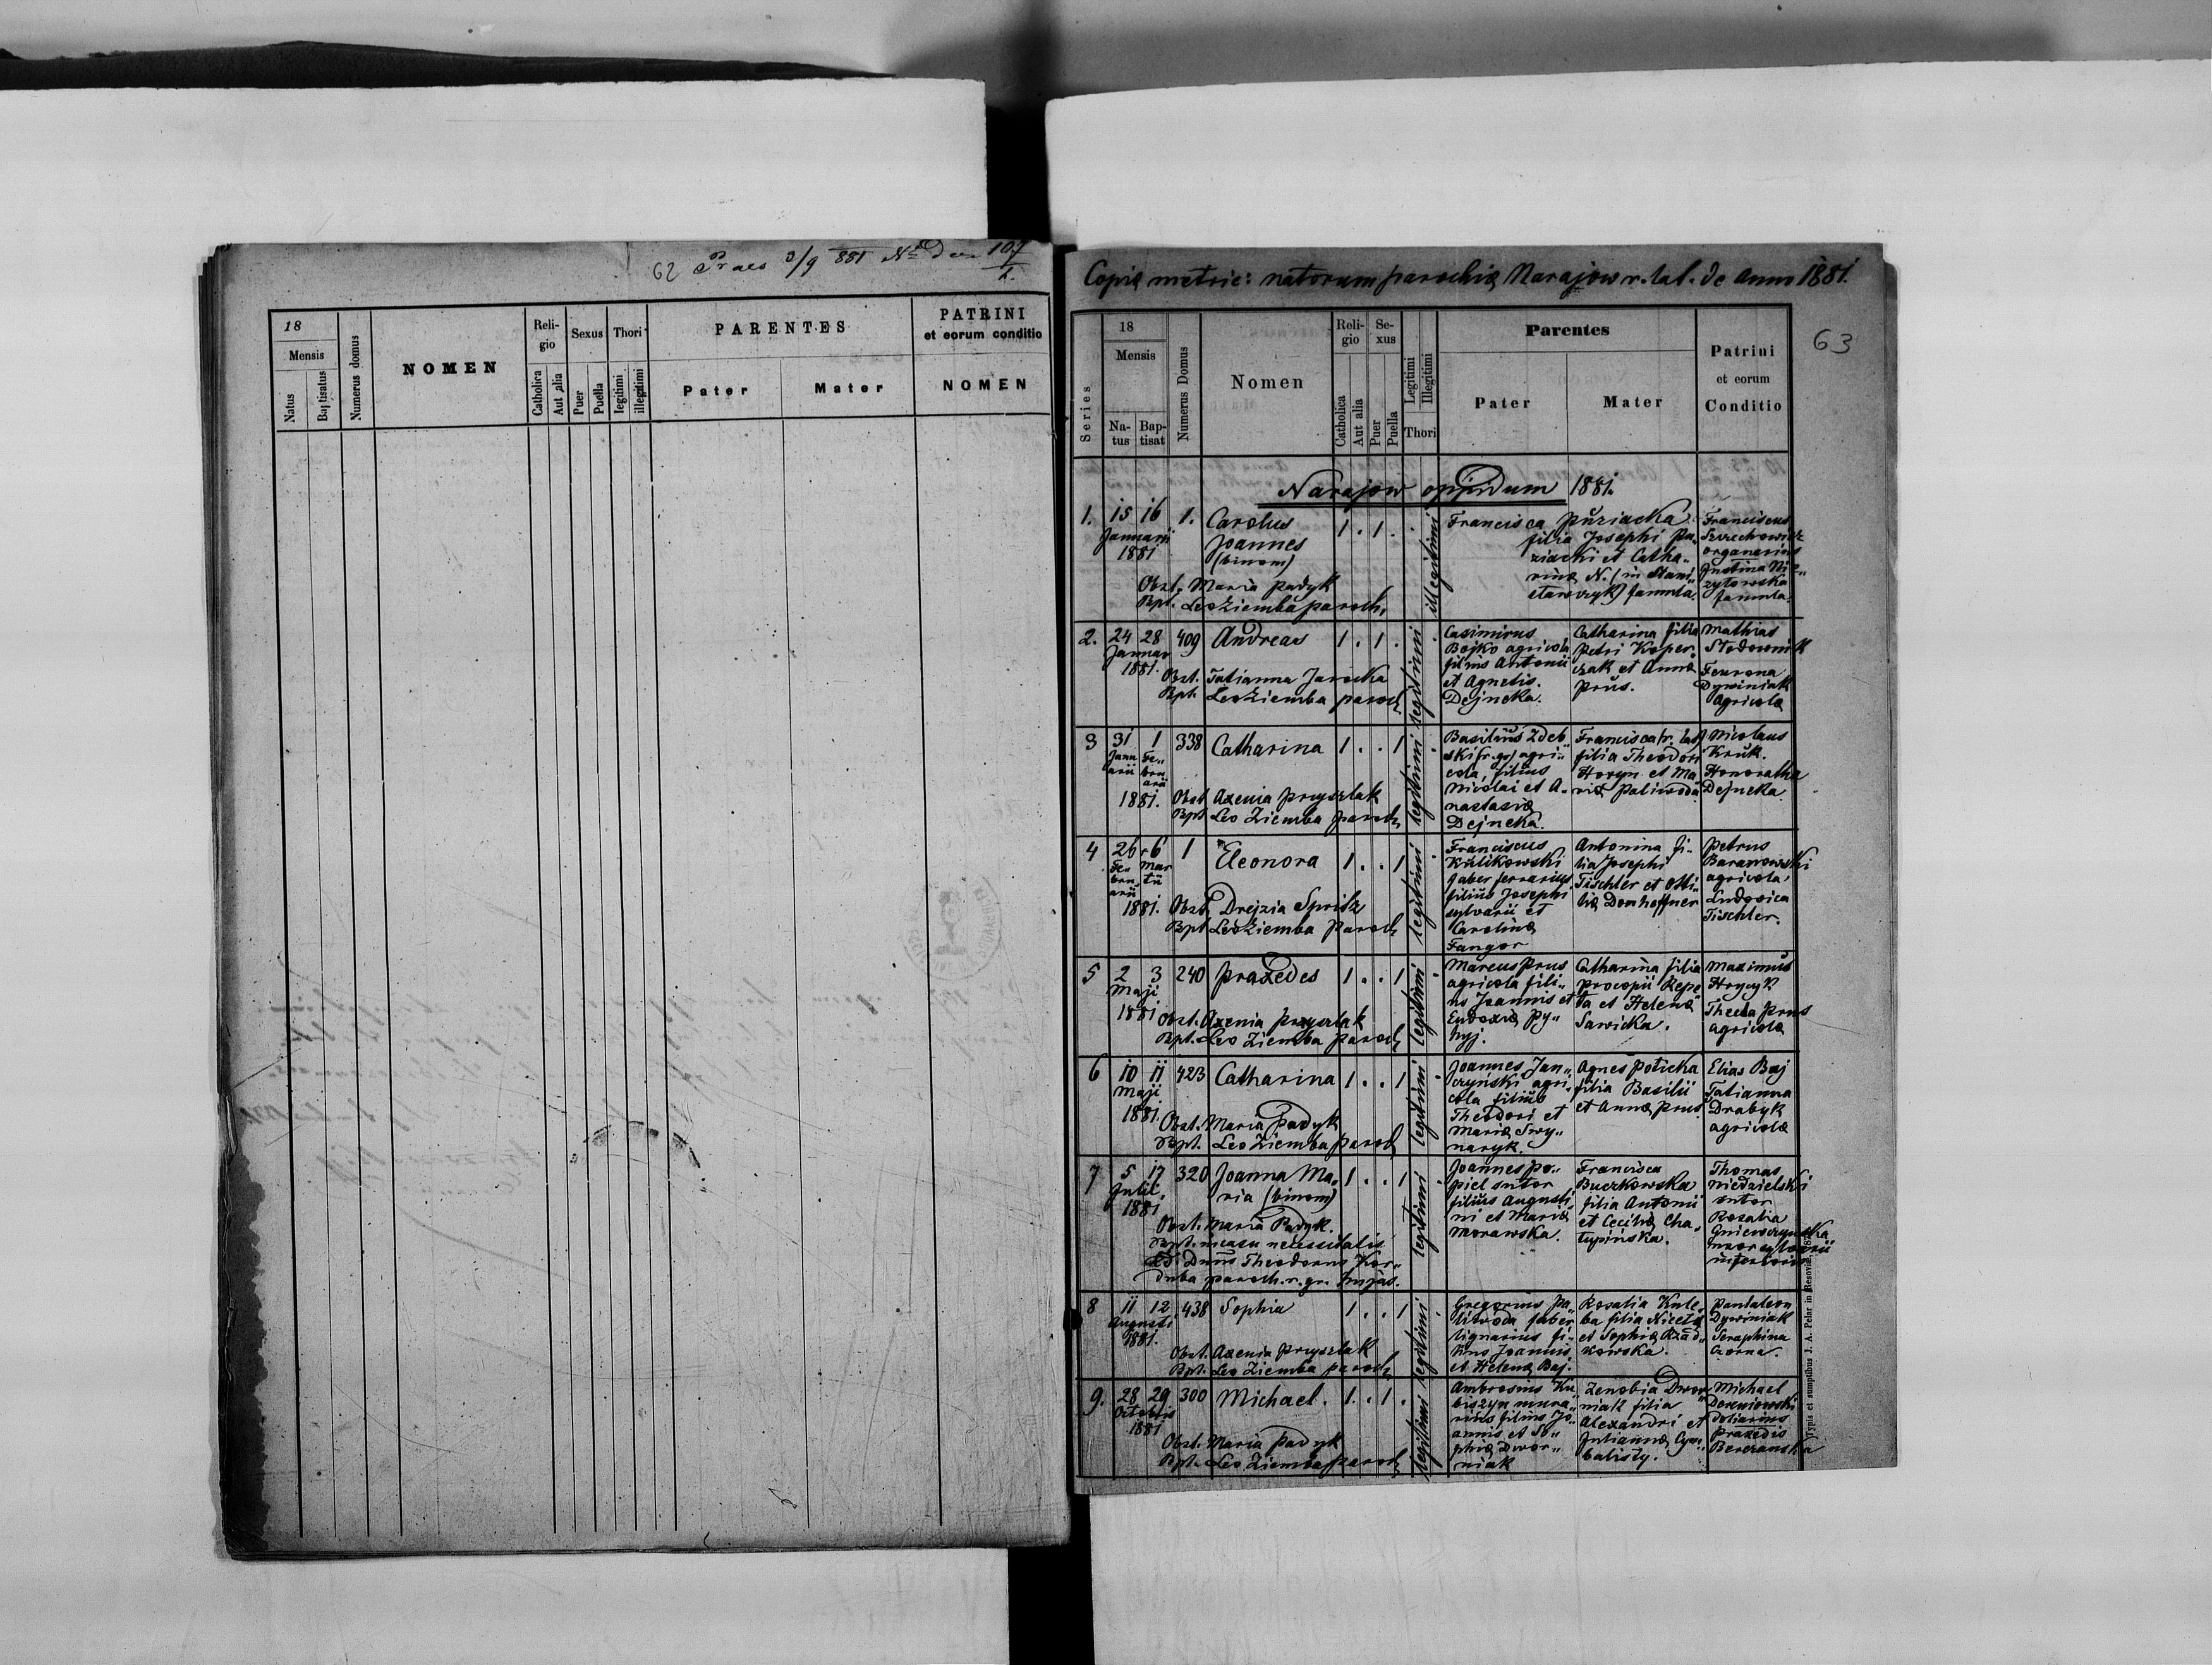 62 Praes 3/9 881 No Dec 107/1.
18
Mensis
Natus
Baptisatus
Numerus domus
NOMEN
Religio
Catholica
Aut alia
Sexus
Puer
Puella
Thori
legitimi
illegitimi
PARENTES
Pater
Mater
PATRINI
et eorum conditio
NOMEN
Copia metric: natorum parochiæ Narajow r. lat. de anno 1881.
63
Series
18
Mensis
Na-
tus
Bap-
tisat
Numerus Domus
Nomen
Reli-
gio
Catholica
Aut alia
Se-
xus
Puer
Puella
Legitimi
Illegitimi
Thori
Parentes
Pater
Mater
Patrini
et eorum
Conditio
Narajow oppidum 1881.
1. 15 16 1. Carolus 1 . 1 .
Januarii Joannes
1881 (binom)
Obst. Maria Padyk
Bpt. Leo Ziemba paroch.
illegitimi
Francisca Puziacka
filia Josephi Pu-
ziacki et Catha-
rinæ N. (in Stani-
stawczyk) famula.
Franciscus
Szzechowicz
organarius
Justina Ni-
zytowska
famula.
2. 24 28 409 Andreas 1 . 1 .
Januar
1881.
Obst. Tatianna Jarocka
Bpt. Leo Ziemba paroch
legitimi
Casimirus
Bojko agricola
filius Antonii
et Agnetis
Dejneka.
Catharina filia
Petri Kasper-
czak et Annæ
Prus.
Mathias
Stodownik
Fevrona
Dywiniak
agricolæ
3 31 1 338 Catharina 1 . . 1
Janu Fe-
arii bru
arii
1881. Obst Axenia Pryszlak
Bpt Leo Ziemba paroch
legitimi
Basilius Zdeb-
ski (r. gr) agri-
cola, filius
Nicolai et A-
nastasiæ
Dejneka.
Francisca (r. lat)
filia Theodori
Horyn et Ma-
riæ Paliwoda
Nicolaus
Kruk.
Honoratha
Dejneka
4 26 6 1 Eleonora 1 . . 1
Fe- Mar
bru- tii
arii
1881. Obst. Drejzia Spritz
Bpt Leo Ziemba Paroch
legitimi
Franciscus
Kulikowski
faber ferrarius
filius Josephi
sylvarii et
Carolinæ
Fangor
Antonina fi-
lia Josephi
Tischler et Otti-
liæ Donhoffner
Petrus
Baranowski
agricola
Ludovica
Tischler.
5 2 3 240 Praxedes 1 . . 1
Maji
1881 Obst. Axenia Przyszlak
Bpt. Leo Ziemba paroch
legitimi
Marcus Prus
agricola fili-
us Joannis et
Eudoxiæ Py-
hyj.
Catharina filia
Procopii Repe
ta et Helenæ
Sawicka.
Maximus
Hrycyk
Thecla Prus
agricolæ
6 10 11 423 Catharina 1 . . 1
Maji
1881. Obst. Maria Padyk
Bpt. Leo Ziemba paroch
legitimi
Joannes Jan-
czyński agri-
cola filius
Theodori et
Mariæ Swy-
naryk.
Agnes Poticka
filia Basilii
et Annæ Prus
Elias Baj
Tatianna
Drabyk
agricolæ
7 5 17 320 Joanna Ma- 1 . . 1
Julii ria (binom)
1881
Obst. Maria Padyk.
Bpt. in casu necessitatis
Dnus Theodorus Kor-
duba paroch. r. gr. hujas.
legitimi
Joannes Po-
piel sutor
filius Augusti
ni et Mariæ
Morawska.
Francisca
Buczkowska
filia Antonii
et Ceciliæ Cha-
tupińska.
Thomas
Niedzielski
sutor
Rosalia
Gniewczyńska
uxor sylvarii
inferioris
8 11 12 438 Sophia 1 . . 1
Augusti
1881.
Obst. Axenia Pryszlak
Bpt. Leo Ziemba paroch
legitimi
Gregorius Pa-
liwoda faber
lignarius fi-
lius Joannis
et Helenæ Baj.
Rosalia Kule-
ba filia Nicetæ
et Sophiæ Rząd-
kowska.
Pantaleon
Dywiniak
Seraphina
Czorna.
9. 28 29 300 Michael. 1 . 1 .
Octobris
1881
Obst. Maria Padyk
Bpt. Leo Ziemba paroch
legitimi
Ambrosius Ku-
biszyn mura-
rius filius Jo-
annis et So-
phiæ Dwor-
niak
Zenobia Dwor-
niak filia
Alexandri et
Juliannæ Cym-
balisty.
Michael
Doreniowski
doliarius
Praxedis
Berezanska
Typis et sumptibus J. A. Pelar in Resovia, 187